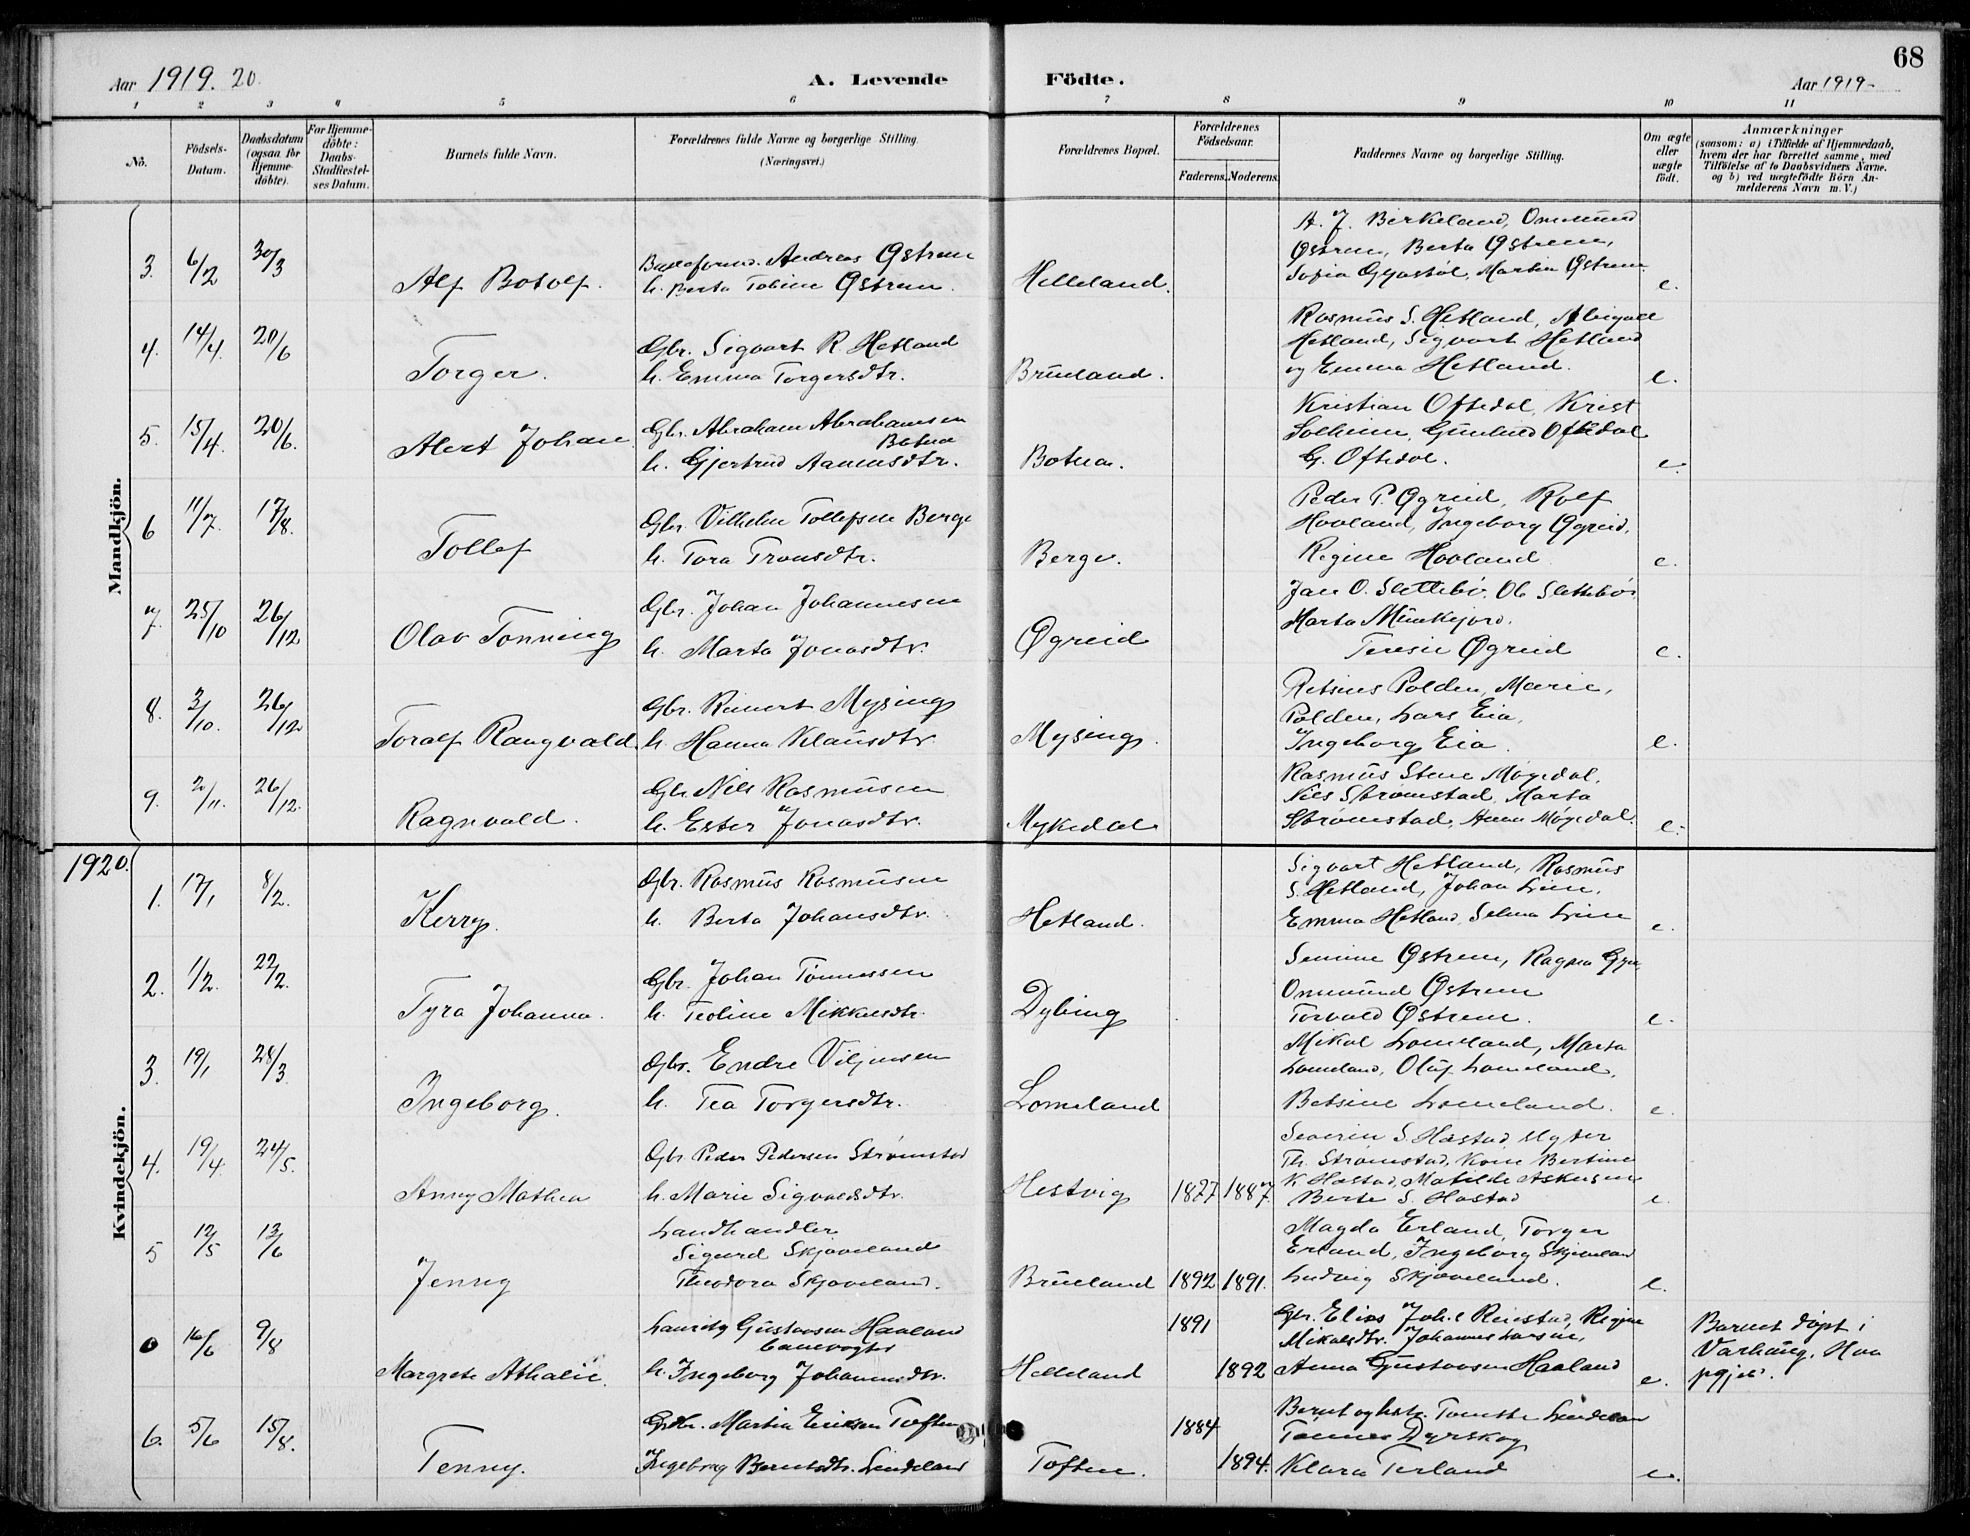 68
Aar 1919. 20.
A. Levende Födte.
Aar 1919-
1 2 3 4 5 6 7 8 9 10 11
No.
Födsels-Datum.
Daabsdatum (ogsaa for Hjemme-döbte).
For Hjemme-döbte: Daabs-Stadfæstel-ses Datum.
Barnets fulde Navn.
Forældrenes fulde Navne og borgerlige Stilling.
(Næringsvei.)
Forældrenes Bopæl.
Forældrenes Födselsaar.
Faderens. Moderens.
Faddernes Navne og borgerlige Stilling.
Om ægte eller uægte födt.
Anmærkninger
(saasom: a) i Tilfælde af Hjemmedaab,
hvem der har forrettet samme, med
Tilföielse af to Daabsvidners Navne.
og b) ved uægtefödte Börn An-
melderens Navn m. V.)
Mandkjön.
3. 6/2 30/3 Alf Botolf.
Andreas Østrem
h. Berta Tobine Østrem.
Helleland.
A. J. Birkeland, Ommund
Østrem, Berta Østrem,
Sofia Gyastøl, Martin Østrem
e.
4. 14/4. 20/6 Torger.
Gbr. Sigvart R. Hetland
h. Emma Torgersdtr.
Brueland.
Rasmus S. Hetland, Abigael
Hetland, Sigvart Hetland
og Emma Hetland.
e.
5. 15/4. 20/6. Alert Johan
Gbr. Abraham Abrahamsen
Botnen
h. Gjertrud Aanensdtr.
Botnen.
Kristian Oftedal, Krist
Solheim, Gunhild Oftedal
G. Oftedal.
e.
6 11/7. 17/8. Tollef
Gbr. Vilhelm Tollefsen Berge
h. Tora Tronsdtr.
Berge.
Peder P. Øgreid, Rolf
Hovland, Ingeborg Øgreid,
Regine Hovland
e.
7. 25/10 26/12 Olav Tonning
Gbr. Johan Johannesen
h. Marta Jonasdtr.
Øgreid
Jan O. Slettebø. Ole Slettebø
Marta Munkejord.
Teresie Øgreid
e.
8. 3/10. 26/12 Toralf Rangvald
Gbr. Reinert Mysing
h. Hanna Klausdtr.
Mysing.
Polden, Marie,
Polden, Lars Eia,
Ingeborg Eia.
e.
9. 2/11. 26/12. Ragnvald.
Gbr Nils Rasmusen
h. Ester Jonasdtr.
Mykedal
Rasmus Stene Møgedal,
Nils Strømstad, Marta
Strømstad, Anna Møgedal.
e.
1920.
Kvindekjön.
1. 17/1 8/2. Kerry.
Gbr. Rasmus Rasmusen
h. Berta Johansdtr.
Hetland.
Sigvart Hetland, Rasmus
S. Hetland, Johan Lien,
Emma Hetland, Selma Lien
e.
2. 1/2. 22/2. Tyra Johanna.
Gbr. Johan Tønnessen
h. Teoline Mikkelsdtr.
Dybing
Semine Østrem, Ragna Gya,
Ommund Østrem
Torvald Østrem.
e.
3. 19/1 28/3 Ingeborg.
Gbr. Endre Viljemsen
h. Tea Torgersdtr.
Lomeland
Mikal Lomeland, Marta
Lomeland, Oluf Lomeland,
Betsine Lomeland.
e.
4. 19/4. 24/5. Anny Mathea
Gbr. Peder Pedersen Strømstad
h. Marie Sigvaldsdtr.
Hestvig 1827 1887
Severin S. Hæstad
Th. Strømstad, Kone Bertine
K. Hæstad, Matilde Askersen
Berte S. Hæstad
e.
5 12/5 13/6 Jenny
Landhandler
Sigurd Skjæveland
Theodora Skjæveland.
Brueland 1892 1891.
Magda Erland, Torger
Erland, Ingeborg Skjæveland
Ludvig Skjæveland.
e.
0 16/6 9/8 Margrete Athalie.
Lauritz Gustavsen Haaland
Banevogter
h. Ingeborg Johannesdtr.
Helleland 1891 1892
Gbr. Elias Joh.s Reiestad, Regine
Mikalsdtr. Johannes Larsen,
Anna Gustavsen Haaland
e.
Barnet døpt i
Varhaug, Haa
pgjeld.
6. 5/6 15/8. Tenny.
Gbr. Martin Eriksen Toften
Ingeborg Berntsdtr. Lindeland
Toften. 1884 1894.
Bernt og Lindeland
Tønnes Dyrskog
Klara Terland
e.